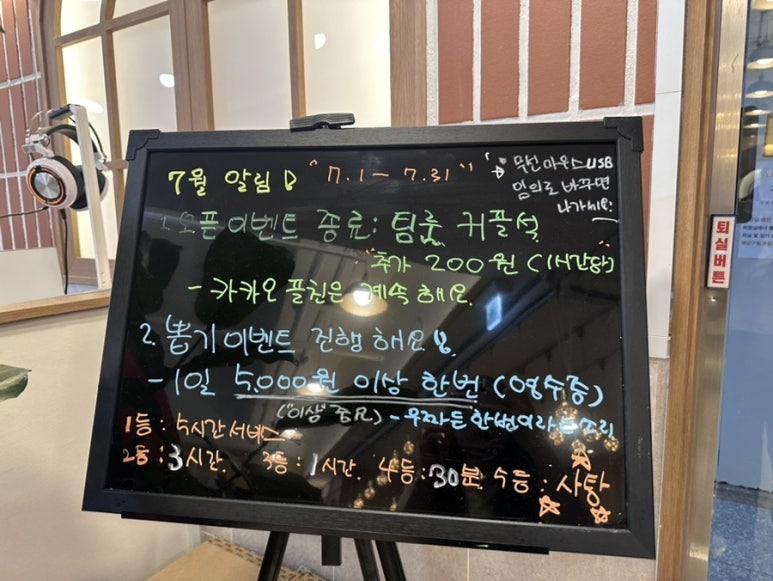 7월 알림 "7.1 - 7.31"
무선마우스 USB
임의로 바꾸면
1. 오픈이벤트 종료: 팀룸, 커플석
추가 200원 (1시간당)
- 카카오 플친은 계속 해요.
2. 뽑기이벤트 진행해요
- 1일 5,000원 이상 한번 (영수증)
("이상" 중요) - 우짜든 한번이라는 소리
1등 : 5시간 서비스
2등 : 3시간. 3등 : 1시간. 4등 : 30분 5등 : 사탕
퇴실버튼